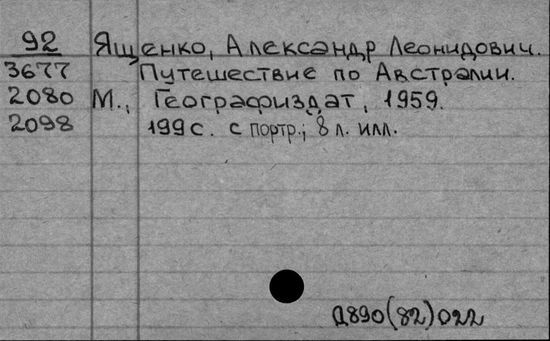 92 Ященко, Александр Леонидович.
3677 Путешествие по Австралии.
2080 М., Географиздат, 1959.
2098 199 с. с портр.; 8 л. илл.
Д890(82)022